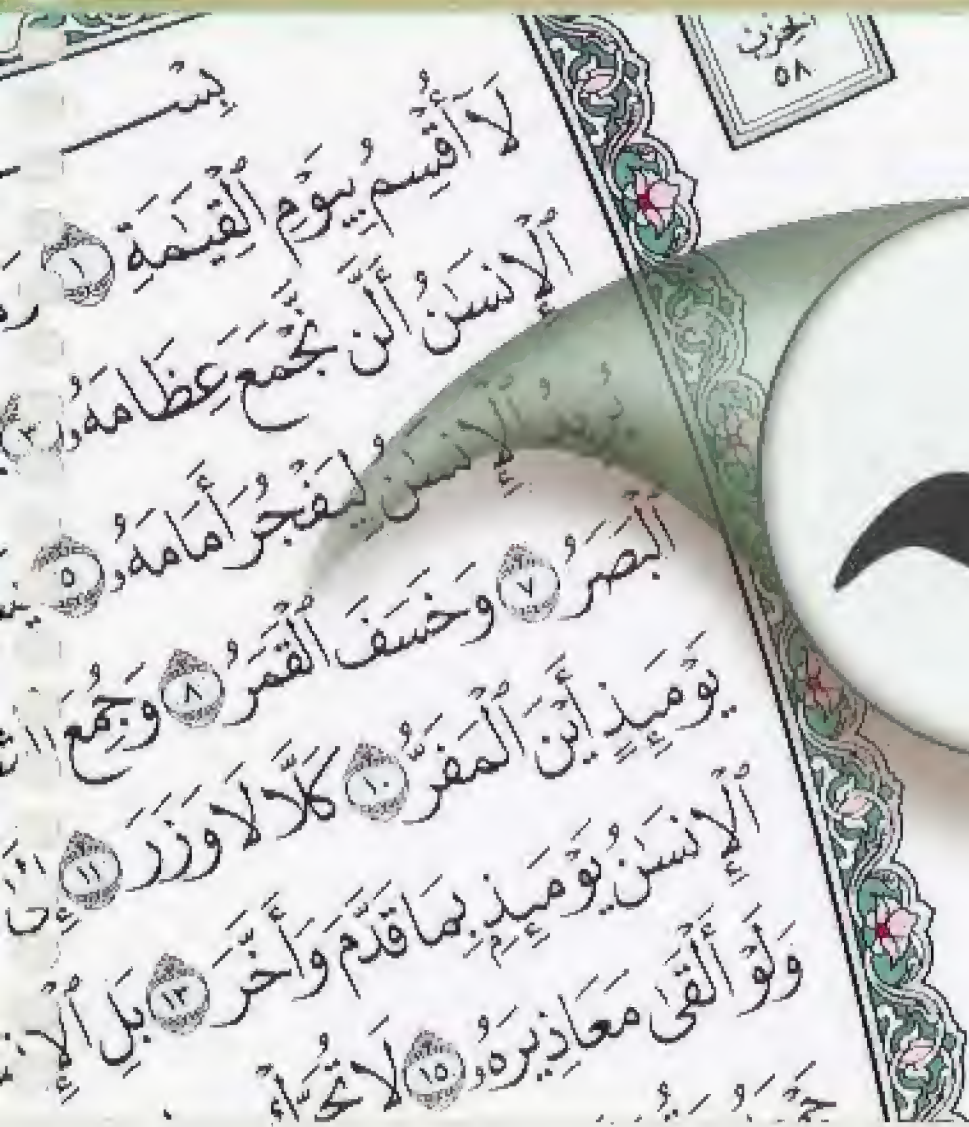 الحزب
٥٨
بِسْـ
لَآ أُقْسِمُ بِيَوْمِ ٱلْقِيَٰمَةِ ١
ٱلْإِنسَٰنُ أَلَّن نَّجْمَعَ عِظَامَهُۥ ٣
يُرِيدُ ٱلْإِنسَٰنُ لِيَفْجُرَ أَمَامَهُۥ ٥
ٱلْبَصَرُ ٧ وَخَسَفَ ٱلْقَمَرُ ٨ وَجُمِعَ
يَوْمَئِذٍ أَيْنَ ٱلْمَفَرُّ ١٠ كَلَّا لَا وَزَرَ ١١ إِلَىٰ
ٱلْإِنسَٰنُ يَوْمَئِذٍۭ بِمَا قَدَّمَ وَأَخَّرَ ١٣ بَلِ
وَلَوْ أَلْقَىٰ مَعَاذِيرَهُۥ ١٥ لَا